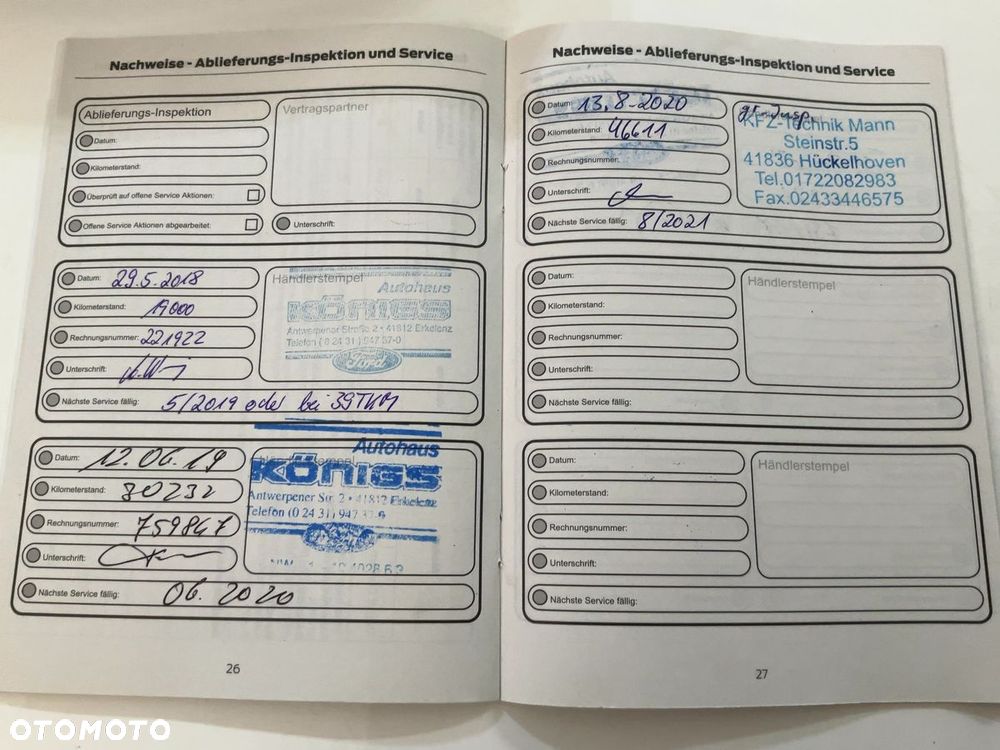 Nachweise - Ablieferungs-Inspektion und Service
Ablieferungs-Inspektion
Vertragspartner
Datum:
Kilometerstand:
Überprüft auf offene Service Aktionen:
Offene Service Aktionen abgearbeitet:
Unterschrift:
Datum: 29.5.2018
Händlerstempel
Autohaus
KÖNIGS
Antwerpener Straße 2 • 41812 Erkelenz
Telefon (0 24 31) 947 67-0
Ford
Kilometerstand: 19000
Rechnungsnummer: 221922
Unterschrift:
Nächste Service fällig: 5/2019 oder bei 39TKM
Datum: 12.06.19
Händlerstempel
Autohaus
KÖNIGS
Antwerpener Str. 2 • 41812 Erkelenz
Telefon (0 24 31) 947
Kilometerstand: 30232
Rechnungsnummer: 759847
Unterschrift:
Nächste Service fällig: 06. 2020
26
Nachweise - Ablieferungs-Inspektion und Service
Datum: 13.8-2020
Kilometerstand: 46611
Rechnungsnummer:
Unterschrift:
Nächste Service fällig: 8/2021
gr. Insp.
KFZ-Technik Mann
Steinstr.5
41836 Hückelhoven
Tel.01722082983
Fax.02433446575
Datum:
Händlerstempel
Kilometerstand:
Rechnungsnummer:
Unterschrift:
Nächste Service fällig:
Datum:
Händlerstempel
Kilometerstand:
Rechnungsnummer:
Unterschrift:
Nächste Service fällig:
27
OTOMOTO